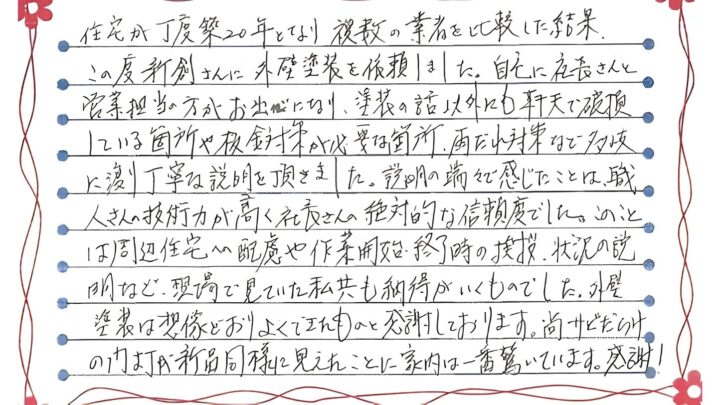 住宅が丁度築20年となり複数の業者を比較した結果、
この度新創さんに外壁塗装を依頼しました。自宅に社長さんと
営業担当の方がお出になり、塗装の話以外にも軒天で破損
している箇所や板金対策が必要な箇所、雨だれ対策など多岐
に渡り丁寧な説明を頂きました。説明の端々で感じたことは、職
人さんの技術力が高く社長さんの絶対的な信頼度でした。このこと
は周辺住宅への配慮や作業開始・終了時の挨拶、状況の説
明など、現場で見ていた私共も納得がいくものでした。外壁
塗装は想像どおりよくできたものと感謝しております。尚サビだらけ
の門灯が新品同様に見えたことに家内は一番驚いています。感謝!